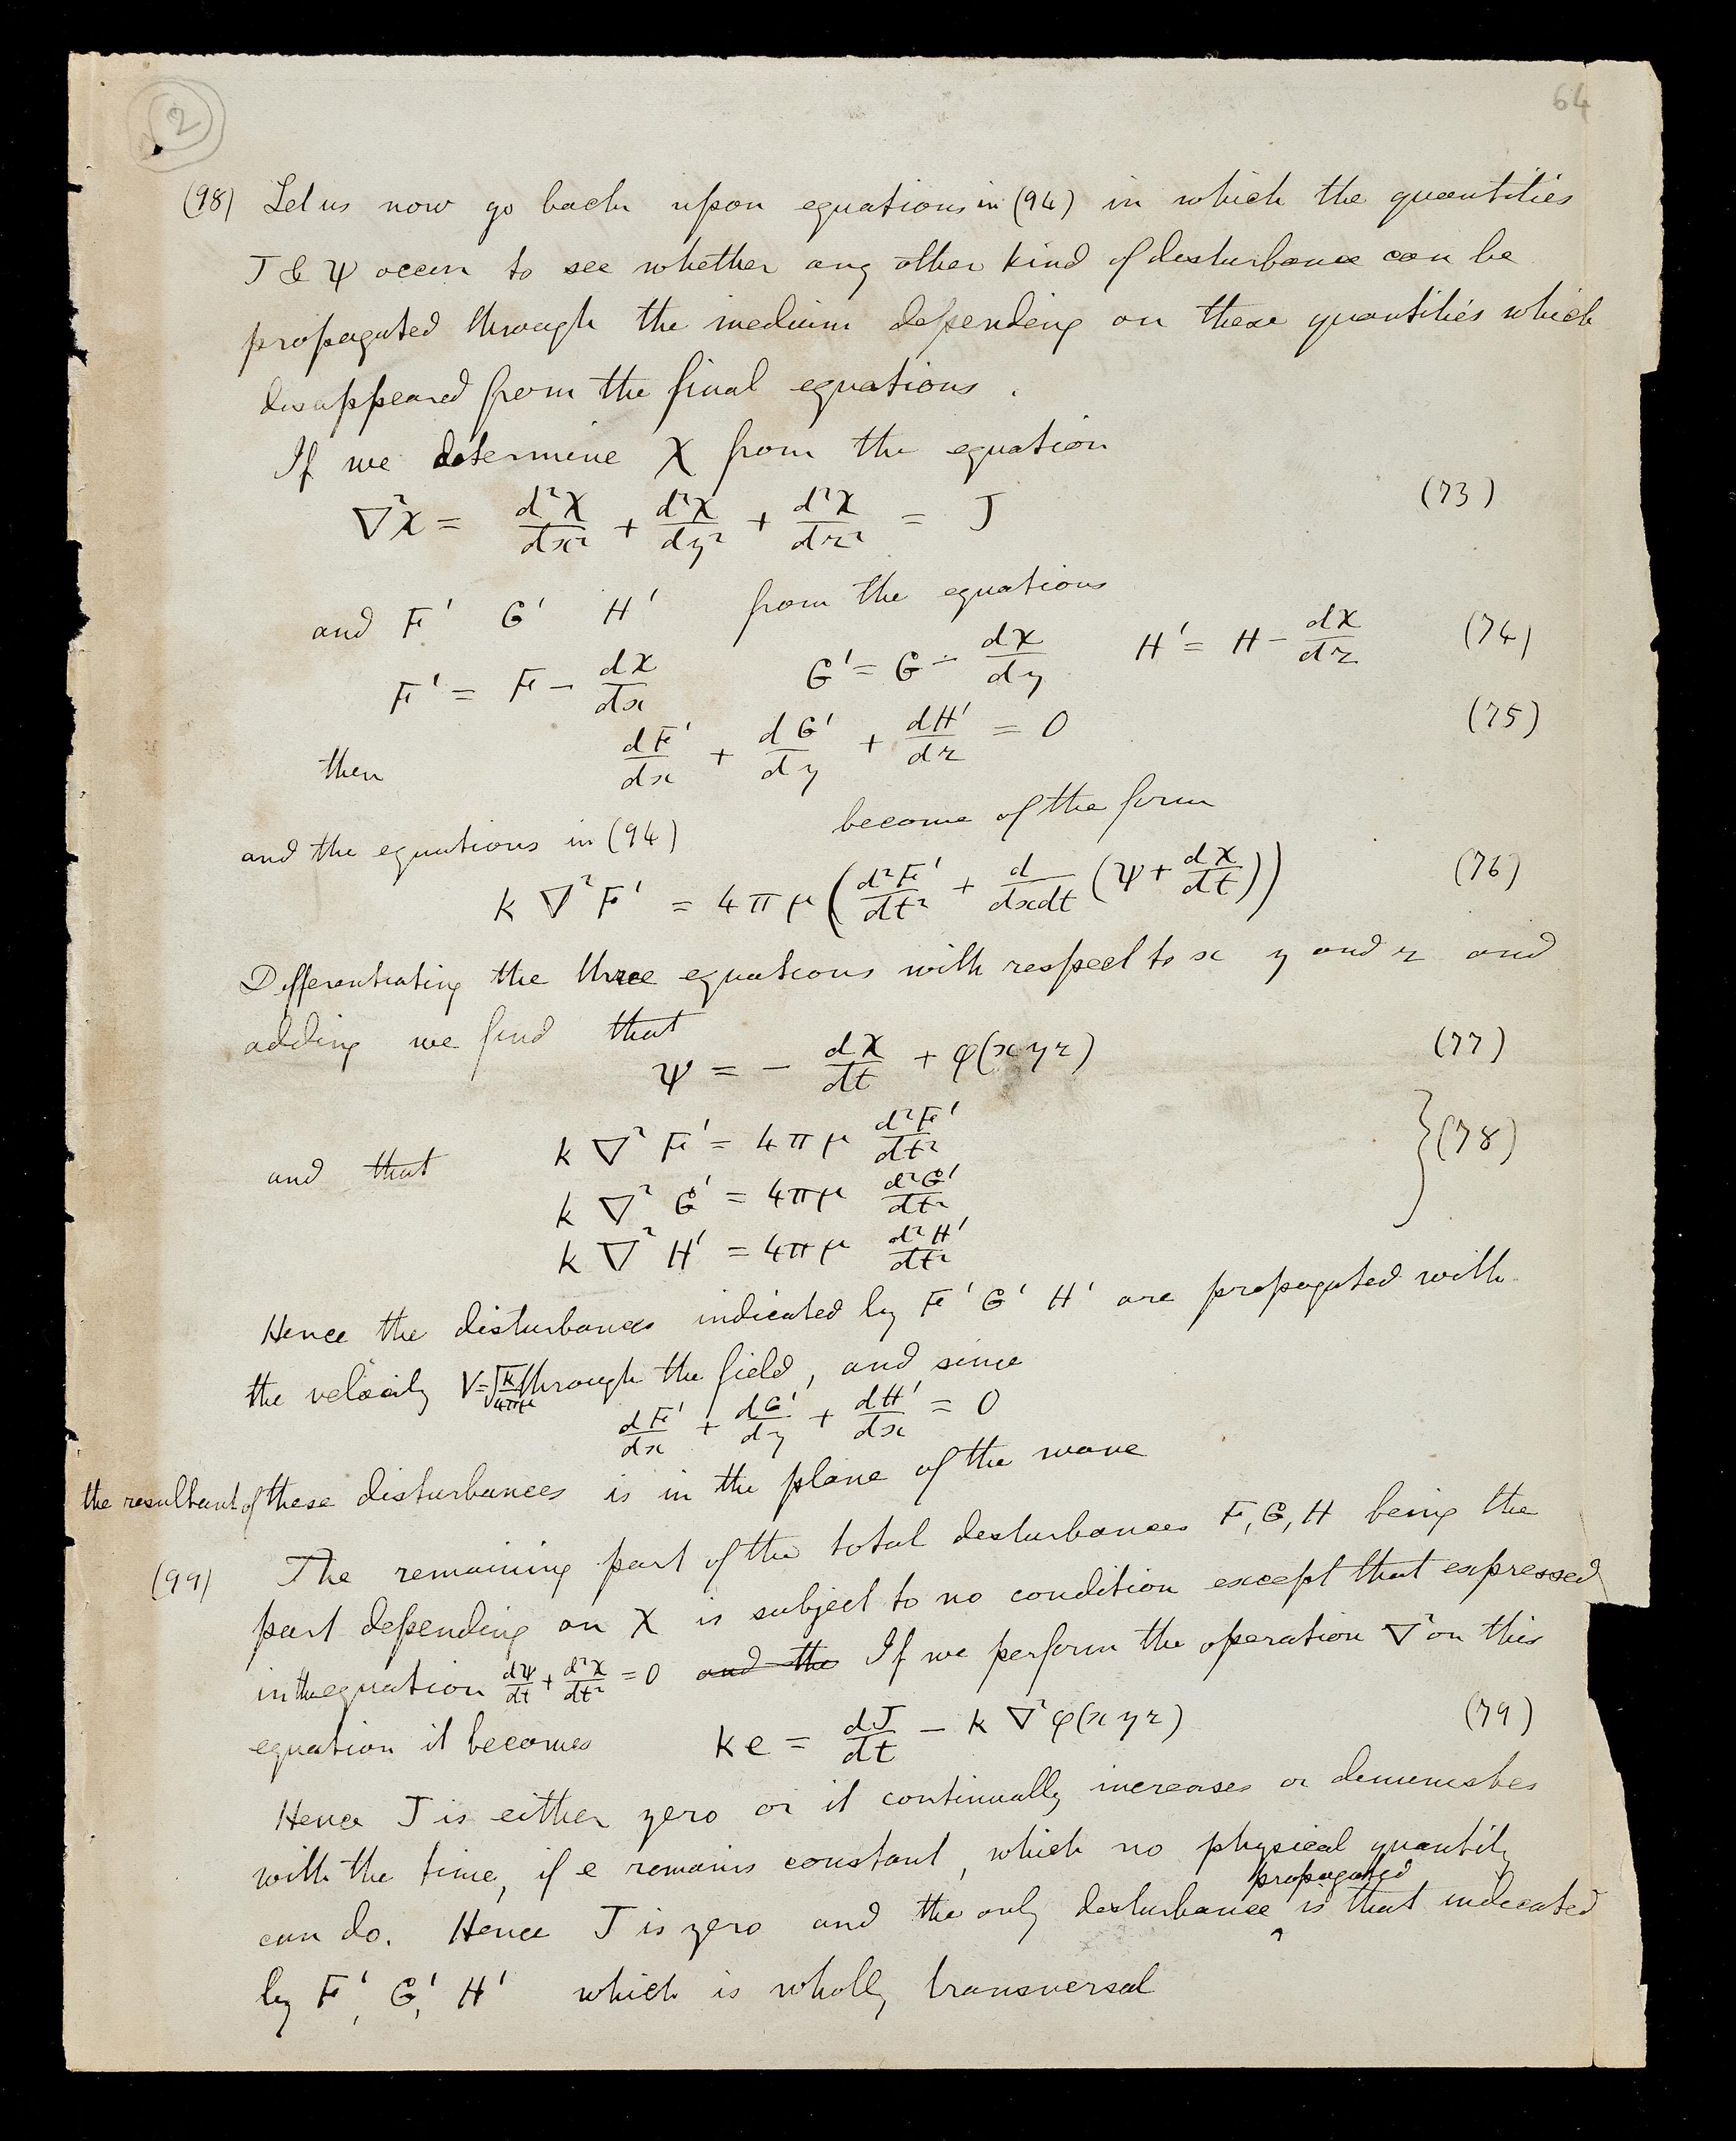 2
64
(98) Let us now go back upon equations in (94) in which the quantities
J & Ψ occur to see whether any other kind of disturbance can be
propagated through the medium depending on these quantities which
disappeared from the final equations .
If we determine χ from the equation
∇²χ = d²χ/dx² + d²χ/dy² + d²χ/dz² = J (73)
and F′ G′ H′ from the equations
F′ = F − dχ/dx G′ = G − dχ/dy H′ = H − dχ/dz (74)
then dF′/dx + dG′/dy + dH′/dz = 0 (75)
and the equations in (94) become of the form
k ∇² F′ = 4πμ (d²F′/dt² + d/dxdt (Ψ + dχ/dt)) (76)
Differentiating the three equations with respect to x y and z and
adding we find that
Ψ = − dχ/dt + φ(x y z) (77)
and that k ∇² F′ = 4πμ d²F′/dt²
k ∇² G′ = 4πμ d²G′/dt² } (78)
k ∇² H′ = 4πμ d²H′/dt²
Hence the disturbances indicated by F′ G′ H′ are propagated with
the velocity V=√k/4πμ through the field, and since
dF′/dx + dG′/dy + dH′/dx = 0
the resultant of these disturbances is in the plane of the wave
(99) The remaining part of the total disturbances F, G, H being the
part depending on χ is subject to no condition except that expressed
in the equation dΨ/dt + d²χ/dt² = 0 and the If we perform the operation ∇² on this
equation it becomes ke = dJ/dt − k ∇² φ(x y z) (79)
Hence J is either zero or it continually increases or diminishes
with the time, if e remains constant, which no physical quantity
can do. Hence J is zero and the only disturbance ^ propagated is that indicated
by F′, G′, H′ which is wholly transversal